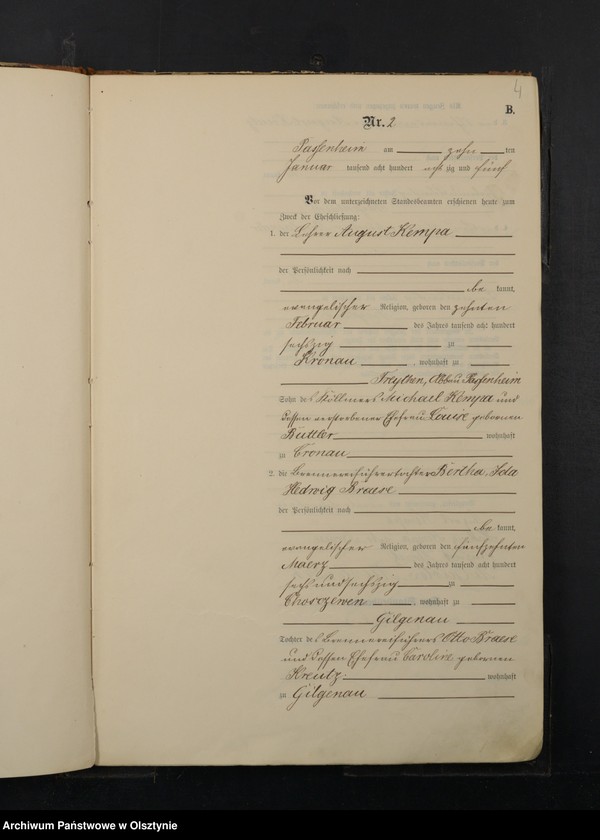 4
B.
Nr. 2
Passenheim am zehn ten
Januar tausend acht hundert acht zig und fünf
Vor dem unterzeichneten Standesbeamten erschienen heute zum
Zweck der Eheschließung:
1. der Lehrer August Kempa
der Persönlichkeit nach
be kannt,
evangelischer Religion, geboren den zehnten
Februar des Jahres tausend acht hundert
sechszig zu
Kronau, wohnhaft zu
Abbau Passenheim
Sohn des Michael Kempa und
dessen verstorbener Ehefrau Louise geborenen
Buttler wohnhaft
zu Cronau
2. die Brennereiführertochter Bertha Ida
Hedwig Braese
der Persönlichkeit nach
be kannt,
evangelischer Religion, geboren den fünfzehnten
Maerz des Jahres tausend acht hundert
sechs und sechszig zu
Choszczewen, wohnhaft zu
Gilgenau
Tochter des Brennereiführers Otto Braese
und dessen Ehefrau Caroline geborenen
Kreutz wohnhaft
zu Gilgenau
Archiwum Państwowe w Olsztynie